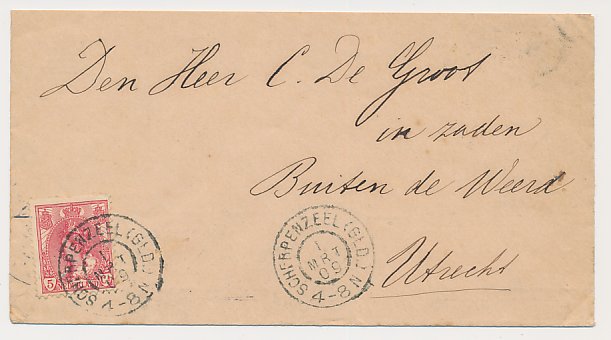 Den Heer C. De Groot
in zaden
Buiten de Weerd
Utrecht
SCHERPENZEEL (GLD.)
1
MRT
09
4-8 N
SCHERPENZEEL (GLD.)
1
MRT
09
4-8 N
5